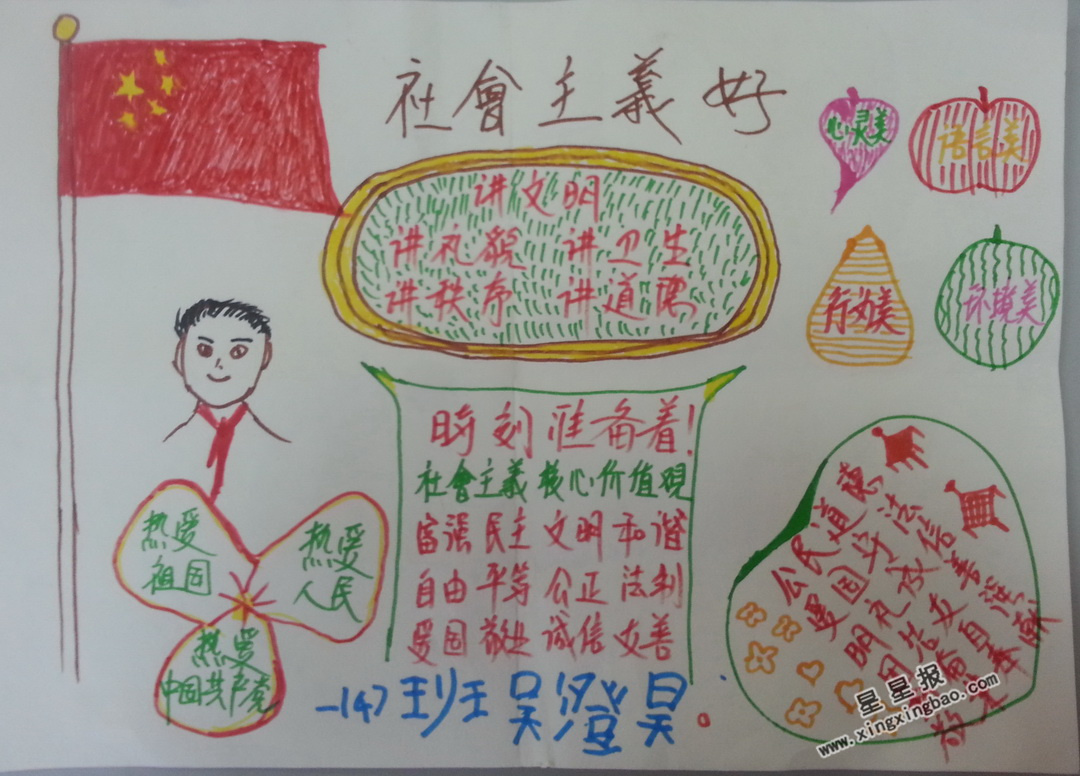 社會主義好
讲文明
讲礼貌 讲卫生
讲秩序 讲道德
心灵美
语言美
行为美
环境美
时刻准备着！
社會主義核心价值观
富强 民主 文明 和谐
自由 平等 公正 法制
爱国 敬业 诚信 友善
热爱
祖国
热爱
人民
热爱
中国共产党
公民道
爱国守法
明礼诚信
一(4)班 吴澄昊
星星报
www.xingxingbao.com